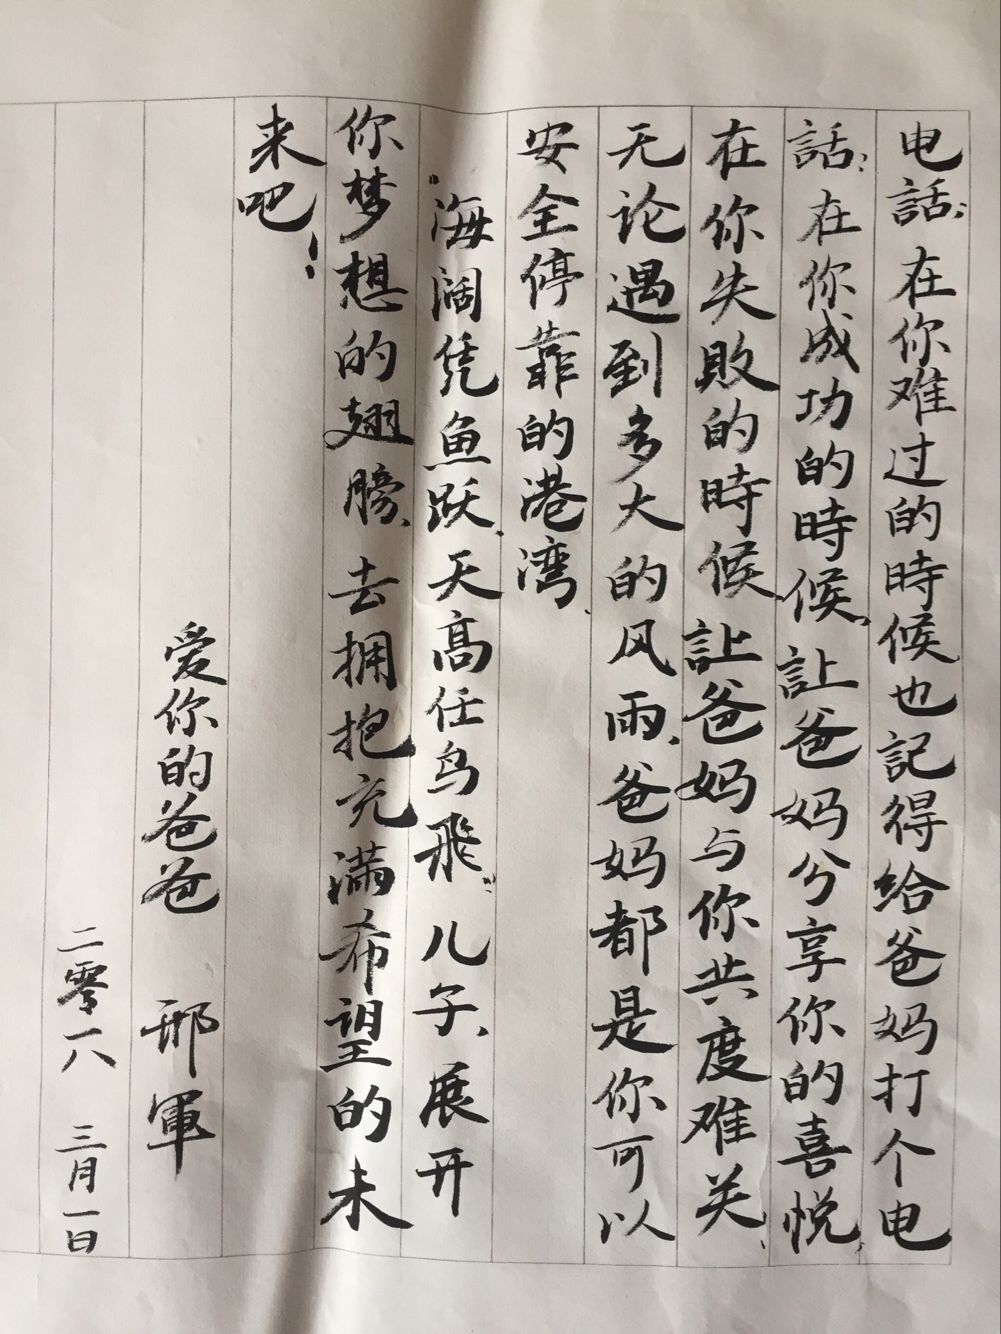 电話；在你难过的時候也記得给爸妈打个电
話；在你成功的時候，让爸妈分享你的喜悦，
在你失敗的時候，让爸妈与你共度难关，
无论遇到多大的风雨，爸妈都是你可以
安全停靠的港湾。
“海阔凭鱼跃，天高任鸟飛”儿子，展开
你梦想的翅膀，去拥抱充满希望的未
来吧！
爱你的爸爸 邢軍
二零一八 三月一日